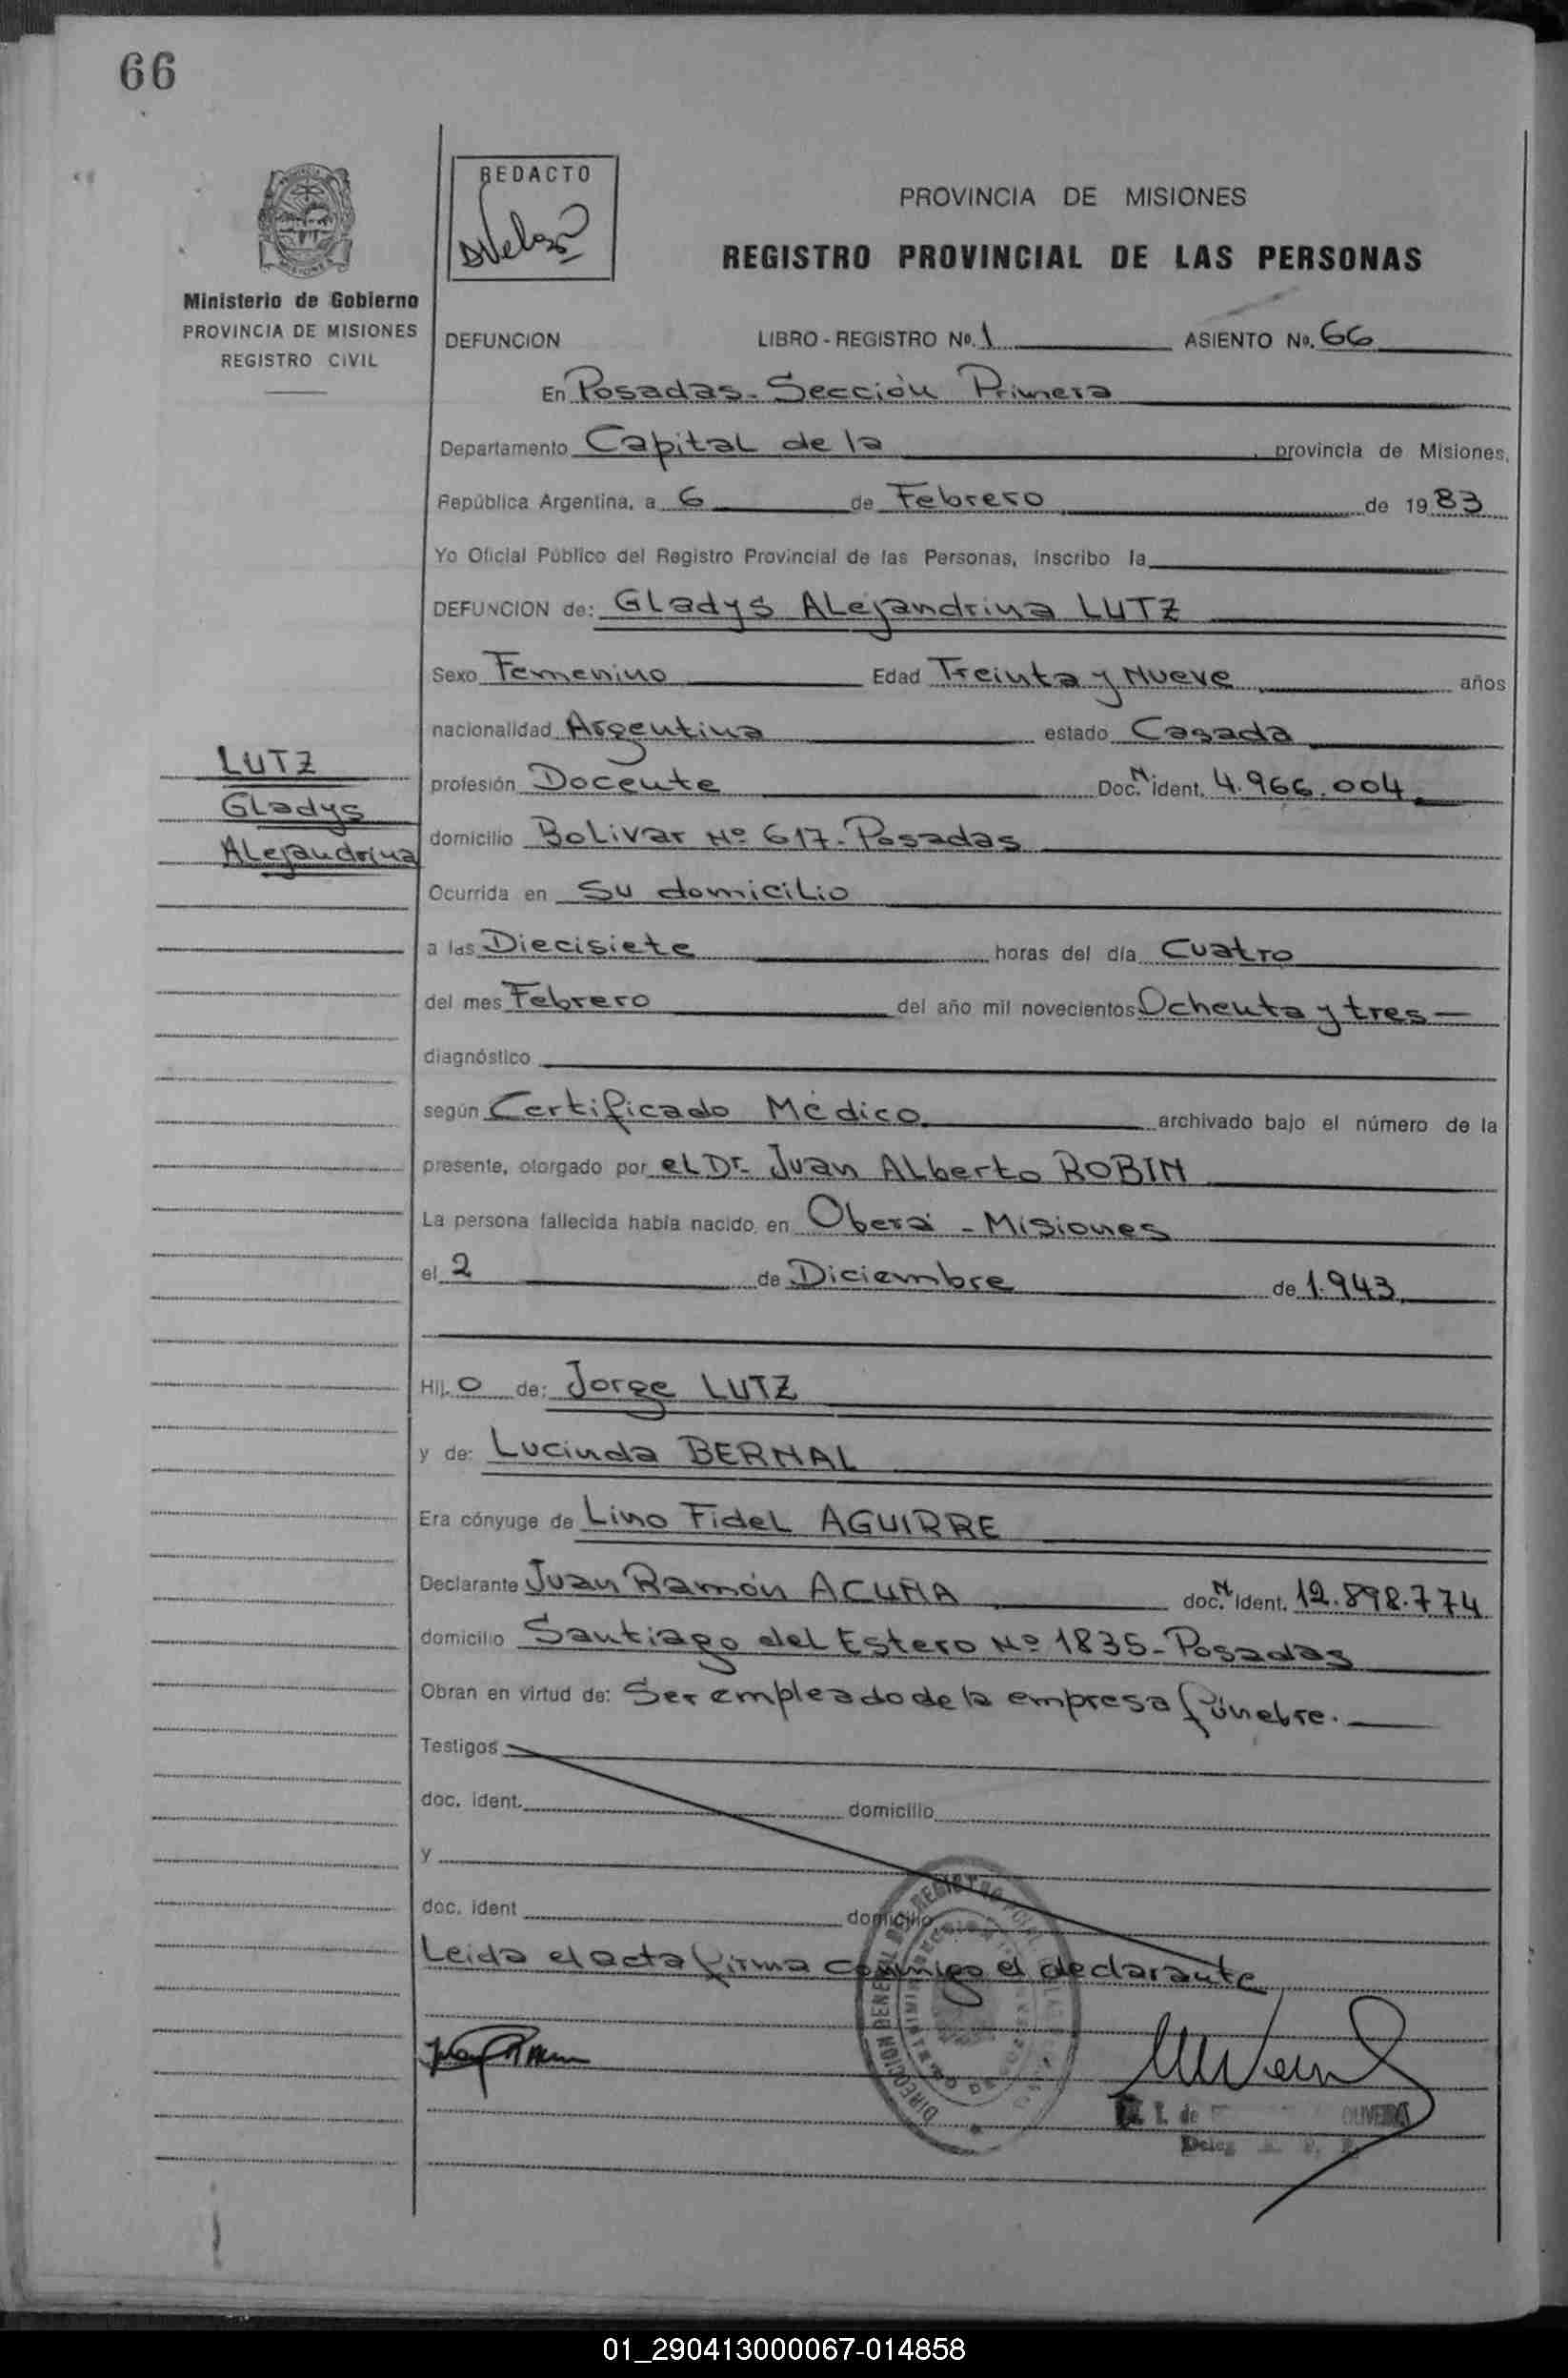 66
MISIONES
Ministerio de Gobierno
PROVINCIA DE MISIONES
REGISTRO CIVIL
REDACTO
PROVINCIA DE MISIONES
REGISTRO PROVINCIAL DE LAS PERSONAS
DEFUNCION LIBRO - REGISTRO Nº. 1 ASIENTO Nº. 66
En Posadas - Sección Primera
Departamento Capital de la provincia de Misiones,
República Argentina, a 6 de Febrero de 1983
Yo Oficial Público del Registro Provincial de las Personas, inscribo la
DEFUNCION de: Gladys Alejandrina LUTZ
Sexo Femenino Edad Treinta y Nueve años
nacionalidad Argentina estado Casada
LUTZ
Gladys
Alejandrina
profesión Docente Doc. N ident. 4.966.004
domicilio Bolivar Nº 617 - Posadas
Ocurrida en Su domicilio
a las Diecisiete horas del día Cuatro
del mes Febrero del año mil novecientos Ochenta y tres -
diagnóstico
según Certificado Médico archivado bajo el número de la
presente, otorgado por el Dr. Juan Alberto ROBIN
La persona fallecida había nacido en Oberá - Misiones
el 2 de Diciembre de 1.943
Hij o de: Jorge LUTZ
y de: Lucinda BERNAL
Era cónyuge de Lino Fidel AGUIRRE
Declarante Juan Ramón ACUÑA doc. N ident. 12.898.774
domicilio Santiago del Estero Nº 1835 - Posadas
Obran en virtud de: Ser empleado de la empresa fúnebre.
Testigos
doc. ident. domicilio
y
doc. ident domicilio
Leida el acta firma conmigo el declarante
DIRECCION GENERAL DEL REGISTRO
MINISTERIO DE
OLIVEIRA
Deleg
01_290413000067-014858